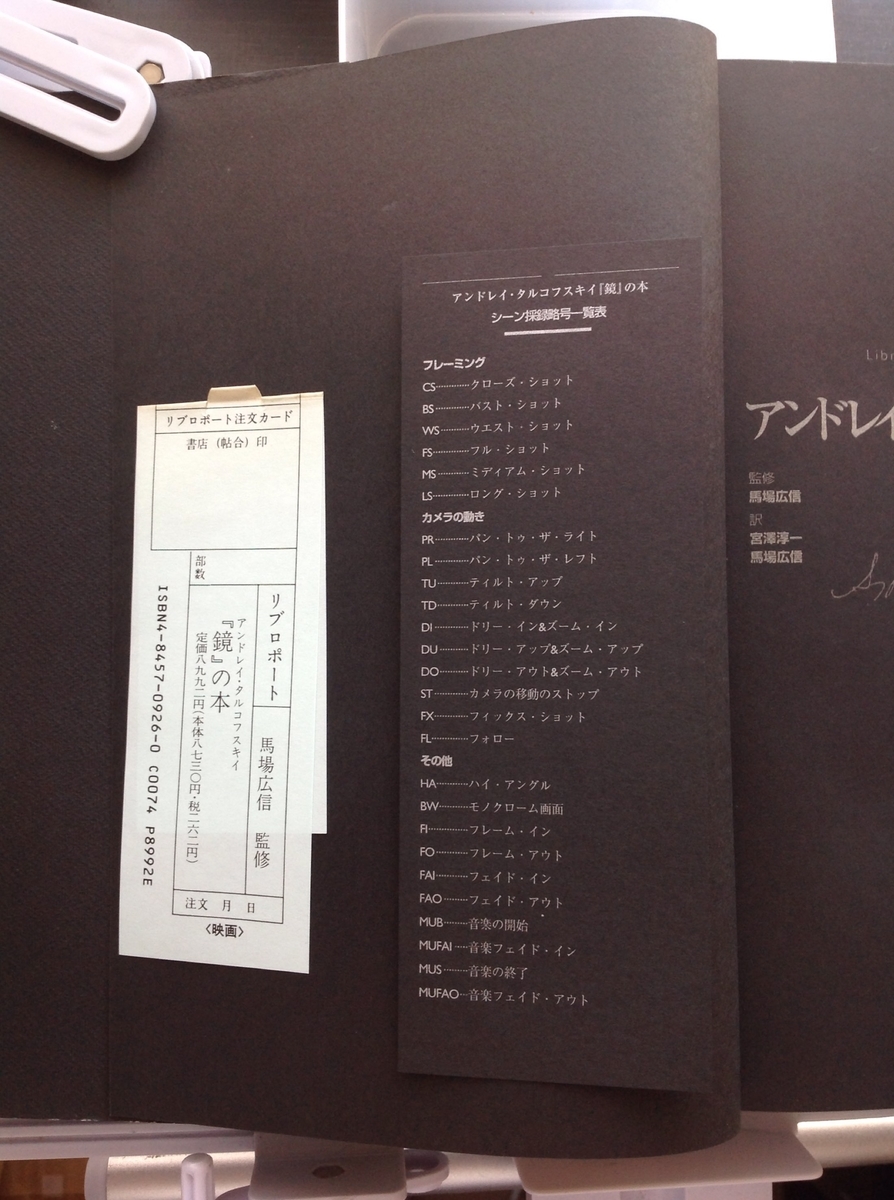 リブロポート注文カード
書店（帖合）印
部数
リブロポート
馬場広信 監修
アンドレイ・タルコフスキイ
『鏡』の本
定価八九九二円(本体八七三〇円・税二六二円)
注文 月 日
〈映画〉
ISBN4-8457-0926-0 C0074 P8992E
アンドレイ・タルコフスキイ『鏡』の本
シーン採録略号一覧表
フレーミング
CS…………クローズ・ショット
BS…………バスト・ショット
WS…………ウエスト・ショット
FS…………フル・ショット
MS…………ミディアム・ショット
LS…………ロング・ショット
カメラの動き
PR…………パン・トゥ・ザ・ライト
PL…………パン・トゥ・ザ・レフト
TU…………ティルト・アップ
TD…………ティルト・ダウン
DI…………ドリー・イン&ズーム・イン
DU…………ドリー・アップ&ズーム・アップ
DO…………ドリー・アウト&ズーム・アウト
ST…………カメラの移動のストップ
FX…………フィックス・ショット
FL…………フォロー
その他
HA…………ハイ・アングル
BW…………モノクローム画面
FI…………フレーム・イン
FO…………フレーム・アウト
FAI…………フェイド・イン
FAO…………フェイド・アウト
MUB………音楽の開始
MUFAI……音楽フェイド・イン
MUS………音楽の終了
MUFAO…音楽フェイド・アウト
Libr
アンドレイ
監修
馬場広信
訳
宮澤淳一
馬場広信